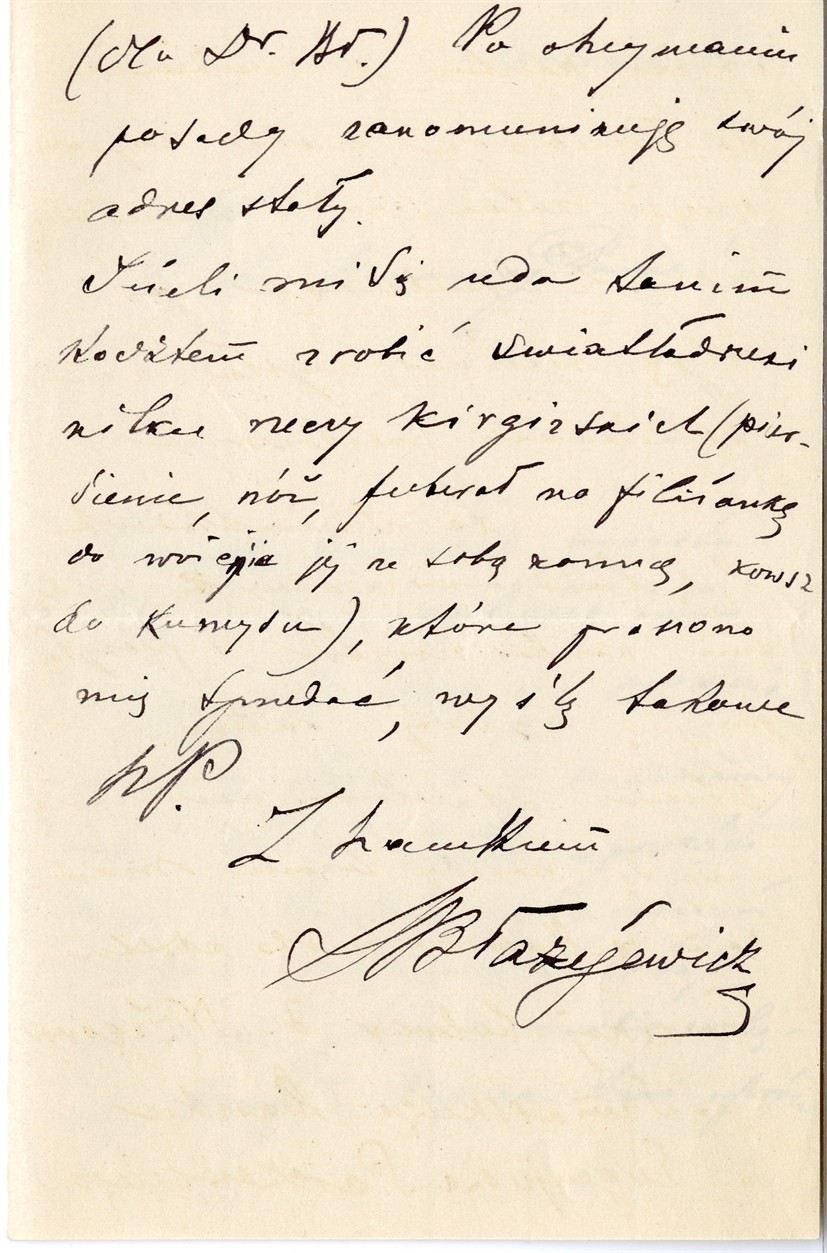 (dla Dr. Bł.) Po otrzymaniu
posady zakomunikuję swój
adres stały.
Jeżeli mi się uda tanim
kosztem zrobić światłodruki
kilku rzeczy kirgizskich (pier-
ścienie, nóż, futerał na filiżankę
do wożenia jej ze sobą konno, kowsz
do kumysu), które proszono
mię sprzedać, wyślę takowe
pP.
Z szacunkiem
Błażejewicz